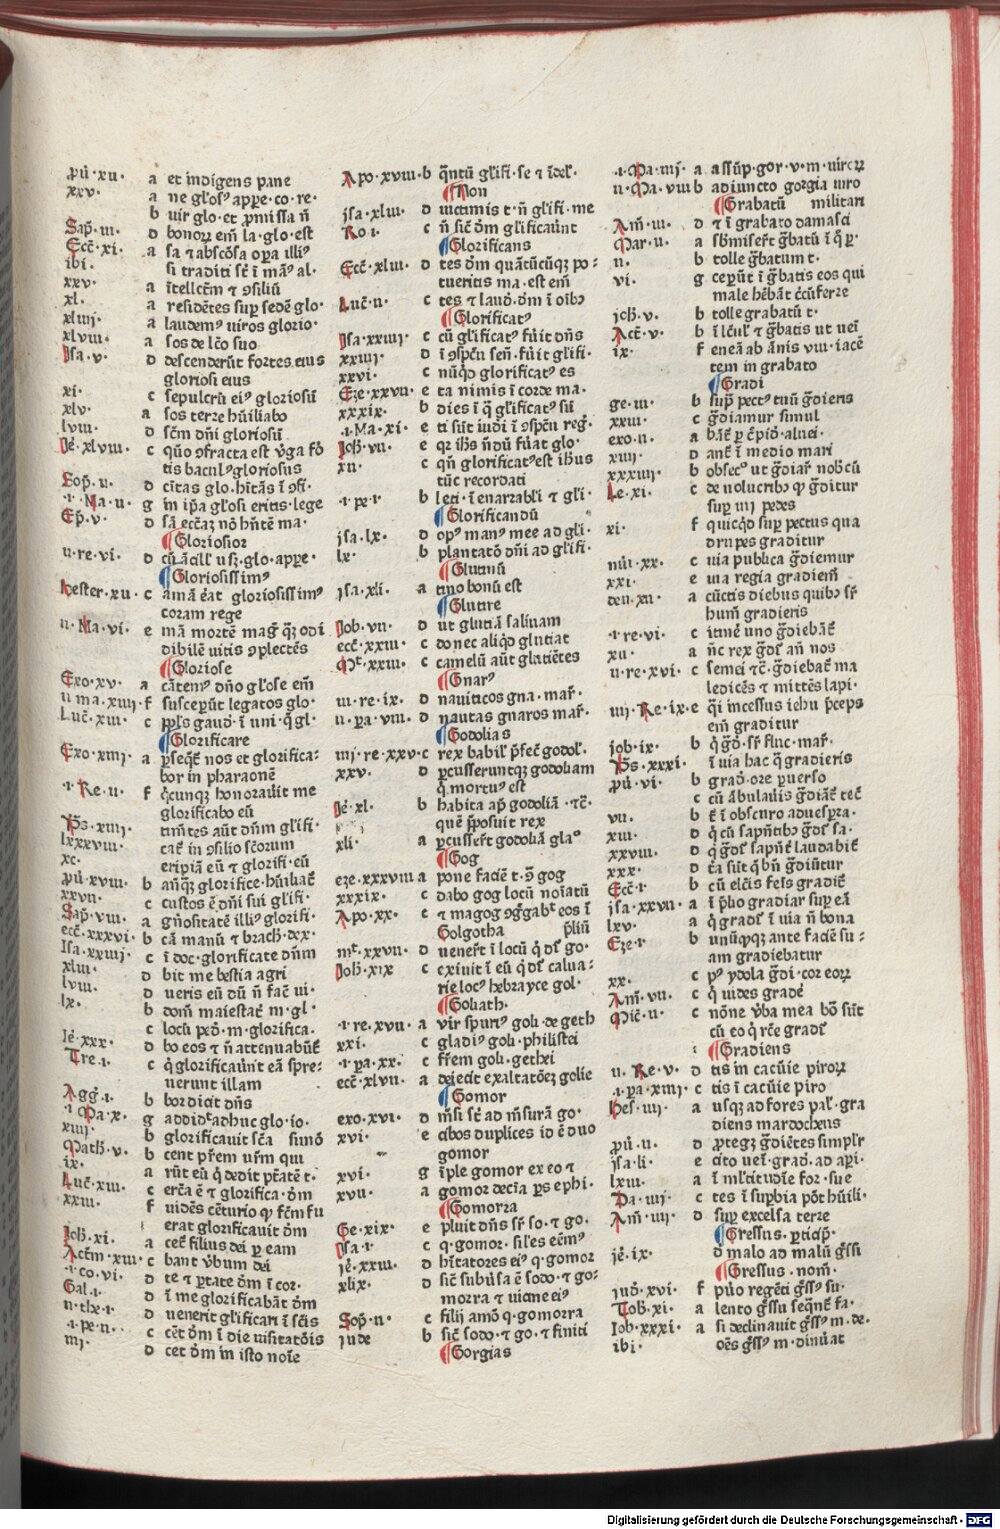 ꝓũ·xu· a et indigens pane
xxv· a ne gl'osꝰ appe·co·re·
b uir glo·et ꝓmissa ñ
Sap̃·iii· d bonoꝝ em̃ la·glo·est
Ecc̃·xi· a sa ⁊ abscõsa oꝑa illiꝰ
ibi· si traditi st̃ ĩ mãꝰ al·
xxv· a ĩtellcẽm ⁊ ꝯsiliũ
xl· a residẽtes suꝑ sedẽ glo·
xliiij· a laudemꝰ uiros glorio·
xlviii· a sos de lčo suo
Jsa·v· d descenderũt fortes eius
gloriosi eius
xi· c sepulcrũ eiꝰ gloriosũ
xlv· a sos terre hũiliabo
lviii· d sc̃m dñi gloriosũ
Je᷑·xlviii· c quõ ꝯfracta est ũga fõ
tis baculꝰ gloriosus
Sop̃·ii· d cĩtas glo·hĩtãs ĩ ꝯfi·
·i·Ma·ii· g in ip̃a gl'osi eritis·lege
Ep̃·v· d sã ecc̃aꝫ nõ hñtẽ ma·
¶Gloriosior
ii·re·vi· d
¶Gloriosissimꝰ
hester·xv· c amã ẽat gloriosissimꝰ
coram rege
ii·Ma·vi· e mã mortẽ mag̃ q̃ꝫ odi
dibilẽ uitis ꝯplectẽs
¶Gloriose
Exo·xv· a cãtemꝰ dño gl'ose em̃
ii ma·xiiij· f susceperũt legatos glo·
Luc̃·xiii· c pp̃ls gaud·ĩ uni·q̃ gl·
¶Glorificare
Exo·xiiij· a ꝑseq̃r̃ nos et glorifica-
bor in pharaone
·i·Re·ii· f q̃cunqꝫ honorauit me
glorificabo eũ
Ps̃·xxi· tim̃tes aũt dñm gl'ifi·
lxxxviii· cat̃ in ꝯsilio sc̃orum
xc· eripiã eũ ⁊ glorifi·eũ
ꝓũ·xviii· b añq̃ꝫ glorifice·hũiliat̃
xxvii· c custos ẽ dñi sui gl'ifi·
Sap̃·viii· a gñositatẽ illiꝰ glorifi·
ecc̃·xxxvi· b cã manũ ⁊ brach·dex·
Isa·xxiiij· c ĩ doc·glorificate dñm
xliii· d bit me bestia agri
lviii· d ueris eũ dũ ñ fac̃ ui·
lx· b dom̃ maiestat̃ m·gl·
c locũ ped·m·glorifica·
Je᷑·xxx· d bo eos ⁊ ñ attenuabũt̃
Tre·i· c q̃ glorificaũnt eã spre-
uerunt illam
Agg̃·i· b bor dicit dñs
·i·Ma·x· g addid̃t adhuc glo·io·
xiiij· b glorificauit sc̃a simõ
Math̃·v· b cent pr̃em ur̃m qui
ix· a rũt eũ q̃ dedit pt̃atẽ t·
Luc̃·xiii· c erc̃a ẽ ⁊ glorifica·dm̃
xxiii· f uidẽs cẽturio qꝫ fc̃m fu
erat glorificauit dm̃
Joh̃·xi· a cet̃ filius dei ꝑ eam
Act̃m·xiii· c bant ũbum dei
·i·co·vi· d te ⁊ ꝑtate dm̃ ĩ cor·
Gal·i· d ĩ me glorificabãt dm̃
ii·the·i· d uenerit gl'ificari ĩ sc̃is
·i·pe·ii· c cẽt dm̃ ĩ die uisitatõis
iiij· d cet dm̃ in isto noĩe
Apo·xviii· b q̃ntũ gl'ifi·se ⁊ ĩdel'·
¶Non
jsa·xliii· d uictimis t·ñ gl'ifi·me
Ro·i· c ñ sic̃ dm̃ gl'ificaũnt
¶Glorificans
Ecc̃·xliii· d tes dm̃ quãtũcũqꝫ po-
tueritis ma·est em̃
Luc̃·ii· c tes ⁊ laud·dm̃ ĩ oĩbꝰ
¶Glorificatꝰ
Jsa·xxiii· c cũ gl'ificatꝰ fũit dñs
xxiiij· d ĩ ꝯspc̃u señ·fũit gl'ifi·
xxvi· c nũq̃d glorificatꝰ es
Eze·xxvii· e ta nimis ĩ corde ma·
xxxix· b dies ĩ q̃ gl'ificatꝰ sũ
·i·Ma·xi· e ti sũt iudi ĩ ꝯspc̃u reg̃·
Joh̃·vii· e qꝛ ih̃s ñdũ fũat glo·
xii· c qñ glorificatꝰ est ih̃us
tũc recordati
·i·pe·i· b leti·ĩ enarrabl'i ⁊ gl'i·
¶Glorificandũ
jsa·lx· d opꝰ manꝰ mee ad gl'i·
lx· b plantatõ dñi ad gl'ifi·
¶Glutinũ
jsa·xli· a tino bonũ est
¶Glutire
Job·vii· d ut glutiã saliuam
ecc̃·xxiii· c donec aliq̃d glutiat
Mt̃·xxiii· c camelũ aũt glutiẽtes
¶Gnarꝰ
iii·re·ix· d nauticos gna·mar̃·
ii·pa·viii· d nautas gnaros mar̃·
¶Godolias
iiij·re·xxv· c rex babil' p̃fec̃ godol'·
xxv· d ꝑcusseruntqꝫ godoliam
q̃ mortuꝰ est
Je᷑·xl· b habita ap̃ godoliã ·⁊c̃·
quẽ p̃posuit rex
xli· a ꝑcussert̃ godoliã gla°
¶Gog
eze·xxxviii a pone faciẽ t·ꝯ̃ gog
xxxix· c dabo gog locũ noĩatũ
Apo·xx· e ⁊ magog ꝯg̃gabᵗ eos ĩ
Golgotha p̃liũ
mt̃·xxvii· d uener̃t ĩ locũ q̃ dr̃ go·
Joh̃·xix c exiuit ĩ eũ q̃ dr̃ calua-
rie locꝰ hebrayce gol·
¶Goliath·
·i·re·xvii· a vir spuriꝰ goli·de geth
xxi· c gladiꝰ goli·philistei
·i·pa·xx· c fr̃em goli·gethei
ecc̃·xlvii· a deiecit exaltatõeꝫ golie
¶Gomor
exo·xvi· d m̃si st̃ ad m̃surã go·
xvi· e cibos duplices id ẽ duo
gomor
xvi· g ĩple gomor ex eo ⁊
xvii· a gomor decĩa ps ephi·
¶Gomorra
Ge·xix· e pluit dñs sr̃ so·⁊ go·
Jsa·i· c q·gomor·sil'es eẽmꝰ
je᷑·xxiii· d hĩtatores eiꝰ q·gomor
xlix· d sic̃ subũsa ẽ sodo·⁊ go-
morra ⁊ uicine eiꝰ
Sop̃·ii· c filij amõ q·gomorra
jude b sic̃ sodo·⁊ go·⁊ finiti
¶Gorgias
·i·Ma·iiij· a assũp·gor·v·m·uiroꝝ
ii·Ma·viii b adiuncto gorgia uiro
¶Grabatũ militari
Am̃·iii· d ⁊ ĩ grabato damasci
Mar·ii· a sb̃miser̃t g̃batũ ĩ q̃ ꝑ·
ii· b tolle g̃batum t·
vi· g ceꝑũt ĩ g̃batis eos qui
male hẽbãt c̃cũferre
joh̃·v· b tolle grabatũ t·
Act̃·v· b ĩ lc̃ul' ⁊ g̃batis ut ueĩ
ix· f eneã ab ãnis viii·iacẽ
tem in grabato
¶Gradi
ge·iii· b sup̃ pectꝰ tuũ g̃dieris
xxiii· c g̃diamur simul
exo·ii· a bãt̃ ꝑ c̃pid·aluei·
xiiii· d ant̃ ĩ medio mari
xxxiiii· b obsecꝰ ut g̃diar̃ nob̃cũ
Le·xi· c de uolucribꝰ qꝫ g̃ditur
suꝑ iiij pedes
xi· f quicq̃d suꝑ pectus qua
drupes graditur
nũi·xx· c uia publica g̃diemur
xxi· e uia regia gradiem̃
deu·xii· a cũctis diebus quibꝰ sr̃
hum̃ gradieris
·i·re·vi· c itinẽ uno g̃diebãt̃
xii· a ñc rex g̃dr̃ añ nos
ii·re·xvi· c semei ⁊c̃·g̃diebat̃ ma
ledicẽs ⁊ mittẽs lapi·
iiij·Re·ix·e q̃i incessus iehu p̃ceps
em̃ graditur
job·ix· b q̃ g̃d·sr̃ fluc·mar̃·
Ps̃·xxxi· ĩ uia hac q̃ gradieris
ꝓũ·vi· b grad·ore ꝑuerso
c cũ ãbulaũis g̃diãt̃ tec̃
vii· b t̃ ĩ obscuro aduespra·
xiii· d q̃ cũ sapñtibꝰ g̃dr̃ sa·
xxviii· d q̃ g̃dr̃ sapñt̃ laudabit̃
xxx· d t̃a sũt q̃ bñ g̃diũtur
Ecc̃·i· b cũ elc̃is fel's gradit̃
jsa·xxvii· a ĩ p̃lio gradiar suꝑ eã
lxv· a q̃ gradr̃ ĩ uia ñ bona
Eze·i· b unũqꝫqꝫ ante faciẽ su-
am gradiebatur
xx· c pꝰ ydola g̃di·cor eoꝝ
Am̃·vii· c q̃ uides gradẽ
Mic̃·ii· c nõne ũba mea bõ sũt
cũ eo q̃ rc̃e gradr̃
¶Gradiens
ii·Re·v· d tis in cacũie piroꝝ
·i·pa·xiiij· c tis ĩ cacũie piro
Hes·iiij· a usqꝫ ad fores pal'·gra
diens mardocheus
ꝓũ·ii· d ꝓtegꝫ g̃diẽtes simplr̃
jsa·li· e cito ueĩ·grad·ad api·
lxiii· a ĩ ml'titudĩe for·sue
Da·iiij· c tes ĩ suꝑbia põt hũili·
Am̃·iiij· d suꝑ excelsa terre
¶Gressus·ꝑticip̃·
je᷑·ix· d malo ad malũ g̃ssi
¶Gressus·nom̃·
jud·xvi· f pũo regẽti g̃ssꝰ su·
Tob·xi· a lento g̃ssu seq̃nt̃ fa·
Iob·xxxi· a si declinauit g̃ssꝰ m·de·
ibi· oẽs g̃ssꝰ m·dinũat
Digitalisierung gefördert durch die Deutsche Forschungsgemeinschaft - DFG